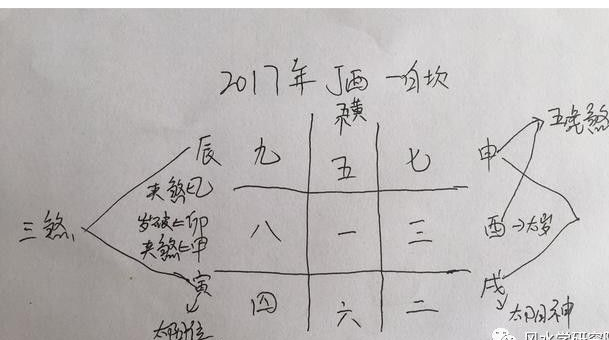 2017年 丁酉 一白坎
五黄
五虎煞
辰 九 五 七 申
夹煞←乙
三煞
岁破←卯 八 一 三 酉→太岁
夹煞←甲
寅 四 六 二 戌
太阴位
太阳神
风水学研究院